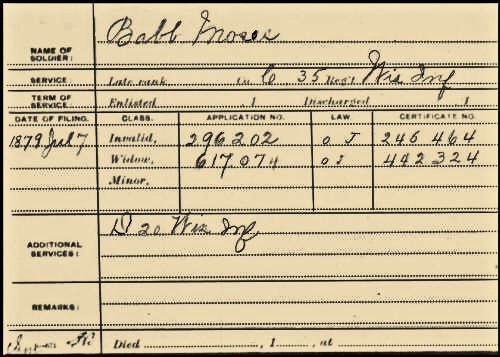 NAME OF SOLDIER: Babb Moses
SERVICE: Late rank, Co. G 35 Reg't Wis Inf
TERM OF SERVICE: Enlisted , 1 Discharged , 1
DATE OF FILING. CLASS. APPLICATION NO. LAW. CERTIFICATE NO.
1879 Jul 7 Invalid, 296202 O J 246 464
Widow, 617074 O J 442 324
Minor,
ADDITIONAL SERVICES: D 20 Wis Inf
REMARKS:
Died , 1 , at